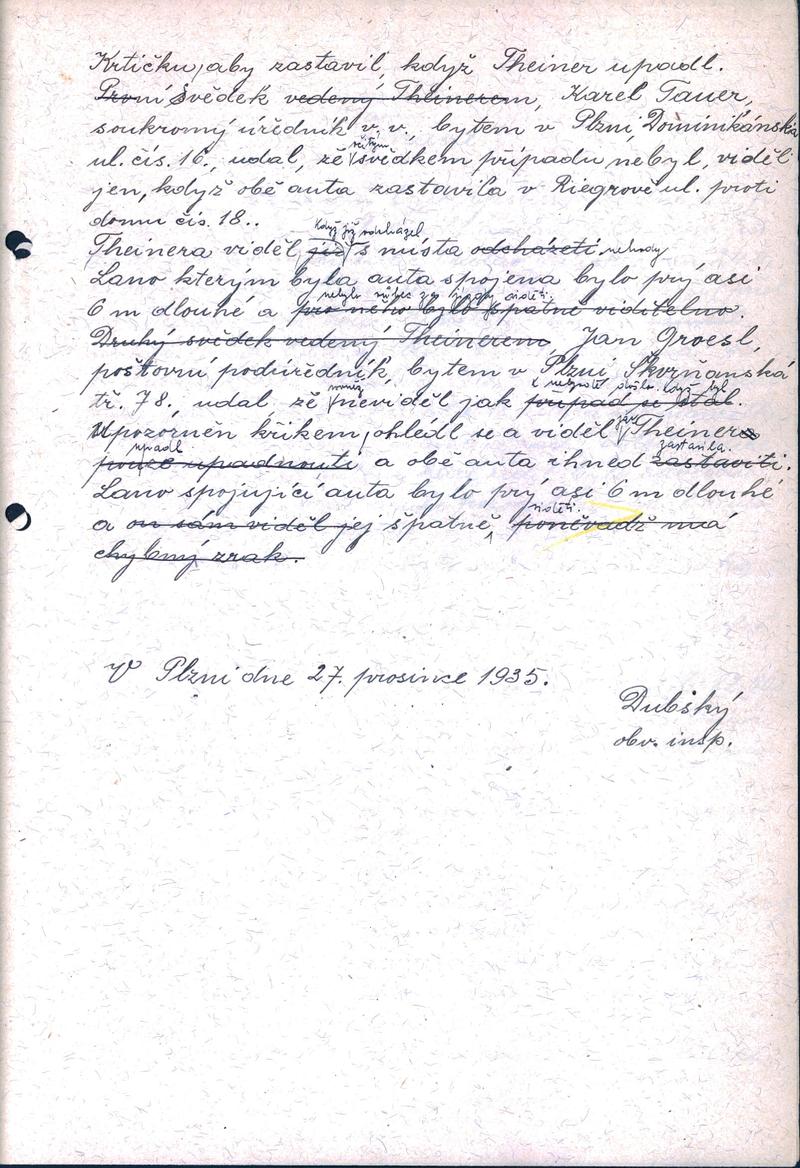 Krtičku, aby zastavil, když Theiner upadl.
První Svědek vedený Theinerem, Karel Tauer,
soukromý úředník v. v., bytem v Plzni, Dominikánská
ul. čís. 16., udal, že svědkem případu nebyl, viděl
jen, když obě auta zastavila v Riegrově ul. proti
domu čís. 18..
když již odcházel
Theinera viděl již s místa odcházeti. nehody
Lano kterým byla auta spojena bylo prý asi
nebylo vůbec za viděti.
6 m dlouhé a pro něho bylo špatně viditelno.
Druhý svědek vedený Theinerem, Jan Groesl,
poštovní podúředník, bytem v Plzni Škvrňanská
k stalo, když byl
tř. 78., udal, že neviděl jak případ se stal.
Upozorněn křikem, ohlédl se a viděl jak Theinera
upadl zastavila.
pouze upadnouti a obě auta ihned zastaviti.
Lano spojující auta bylo prý asi 6 m dlouhé
viděti.
a on sám viděl jej špatně, poněvadž má
chybný zrak.
V Plzni dne 27. prosince 1935.
Dubský
obv. insp.